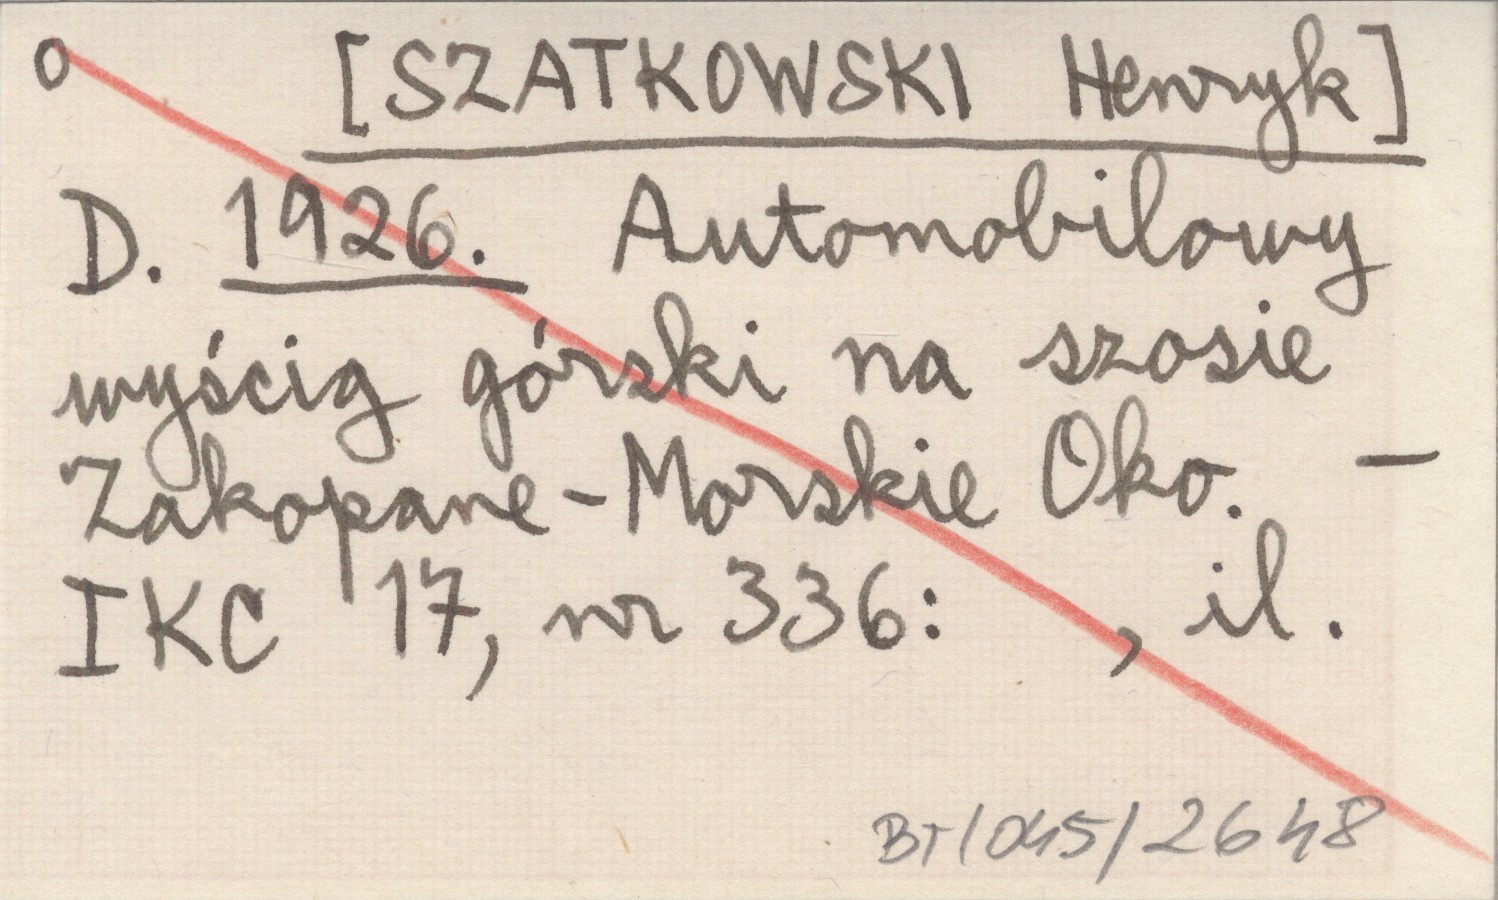 o [SZATKOWSKI Henryk]
D. 1926. Automobilowy
wyścig górski na szosie
Zakopane-Morskie Oko. —
IKC 17, nr 336: , il.
BT/045/2648